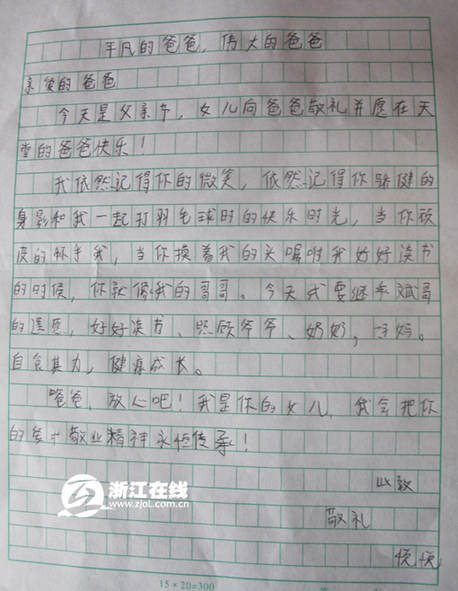 平凡的爸爸，伟大的爸爸
亲爱的爸爸
今天是父亲节，女儿向爸爸敬礼并愿在天
堂的爸爸快乐！
我依然记得你的微笑，依然记得你矫健的
身影和我一起打羽毛球时的快乐时光，当你顽
皮的 我，当你摸着我的头嘱咐我好好读书
的时候，你就像我的哥哥。今天我要继承 哥
的遗愿，好好读书、照顾爷爷、奶奶，妈妈。
自食其力，健康成长。
爸爸，放心吧！我是你的女儿，我会把你
的 敬业精神永恒传承！
此致
敬礼
浙江在线
www.zjol.com.cn
15×20=300